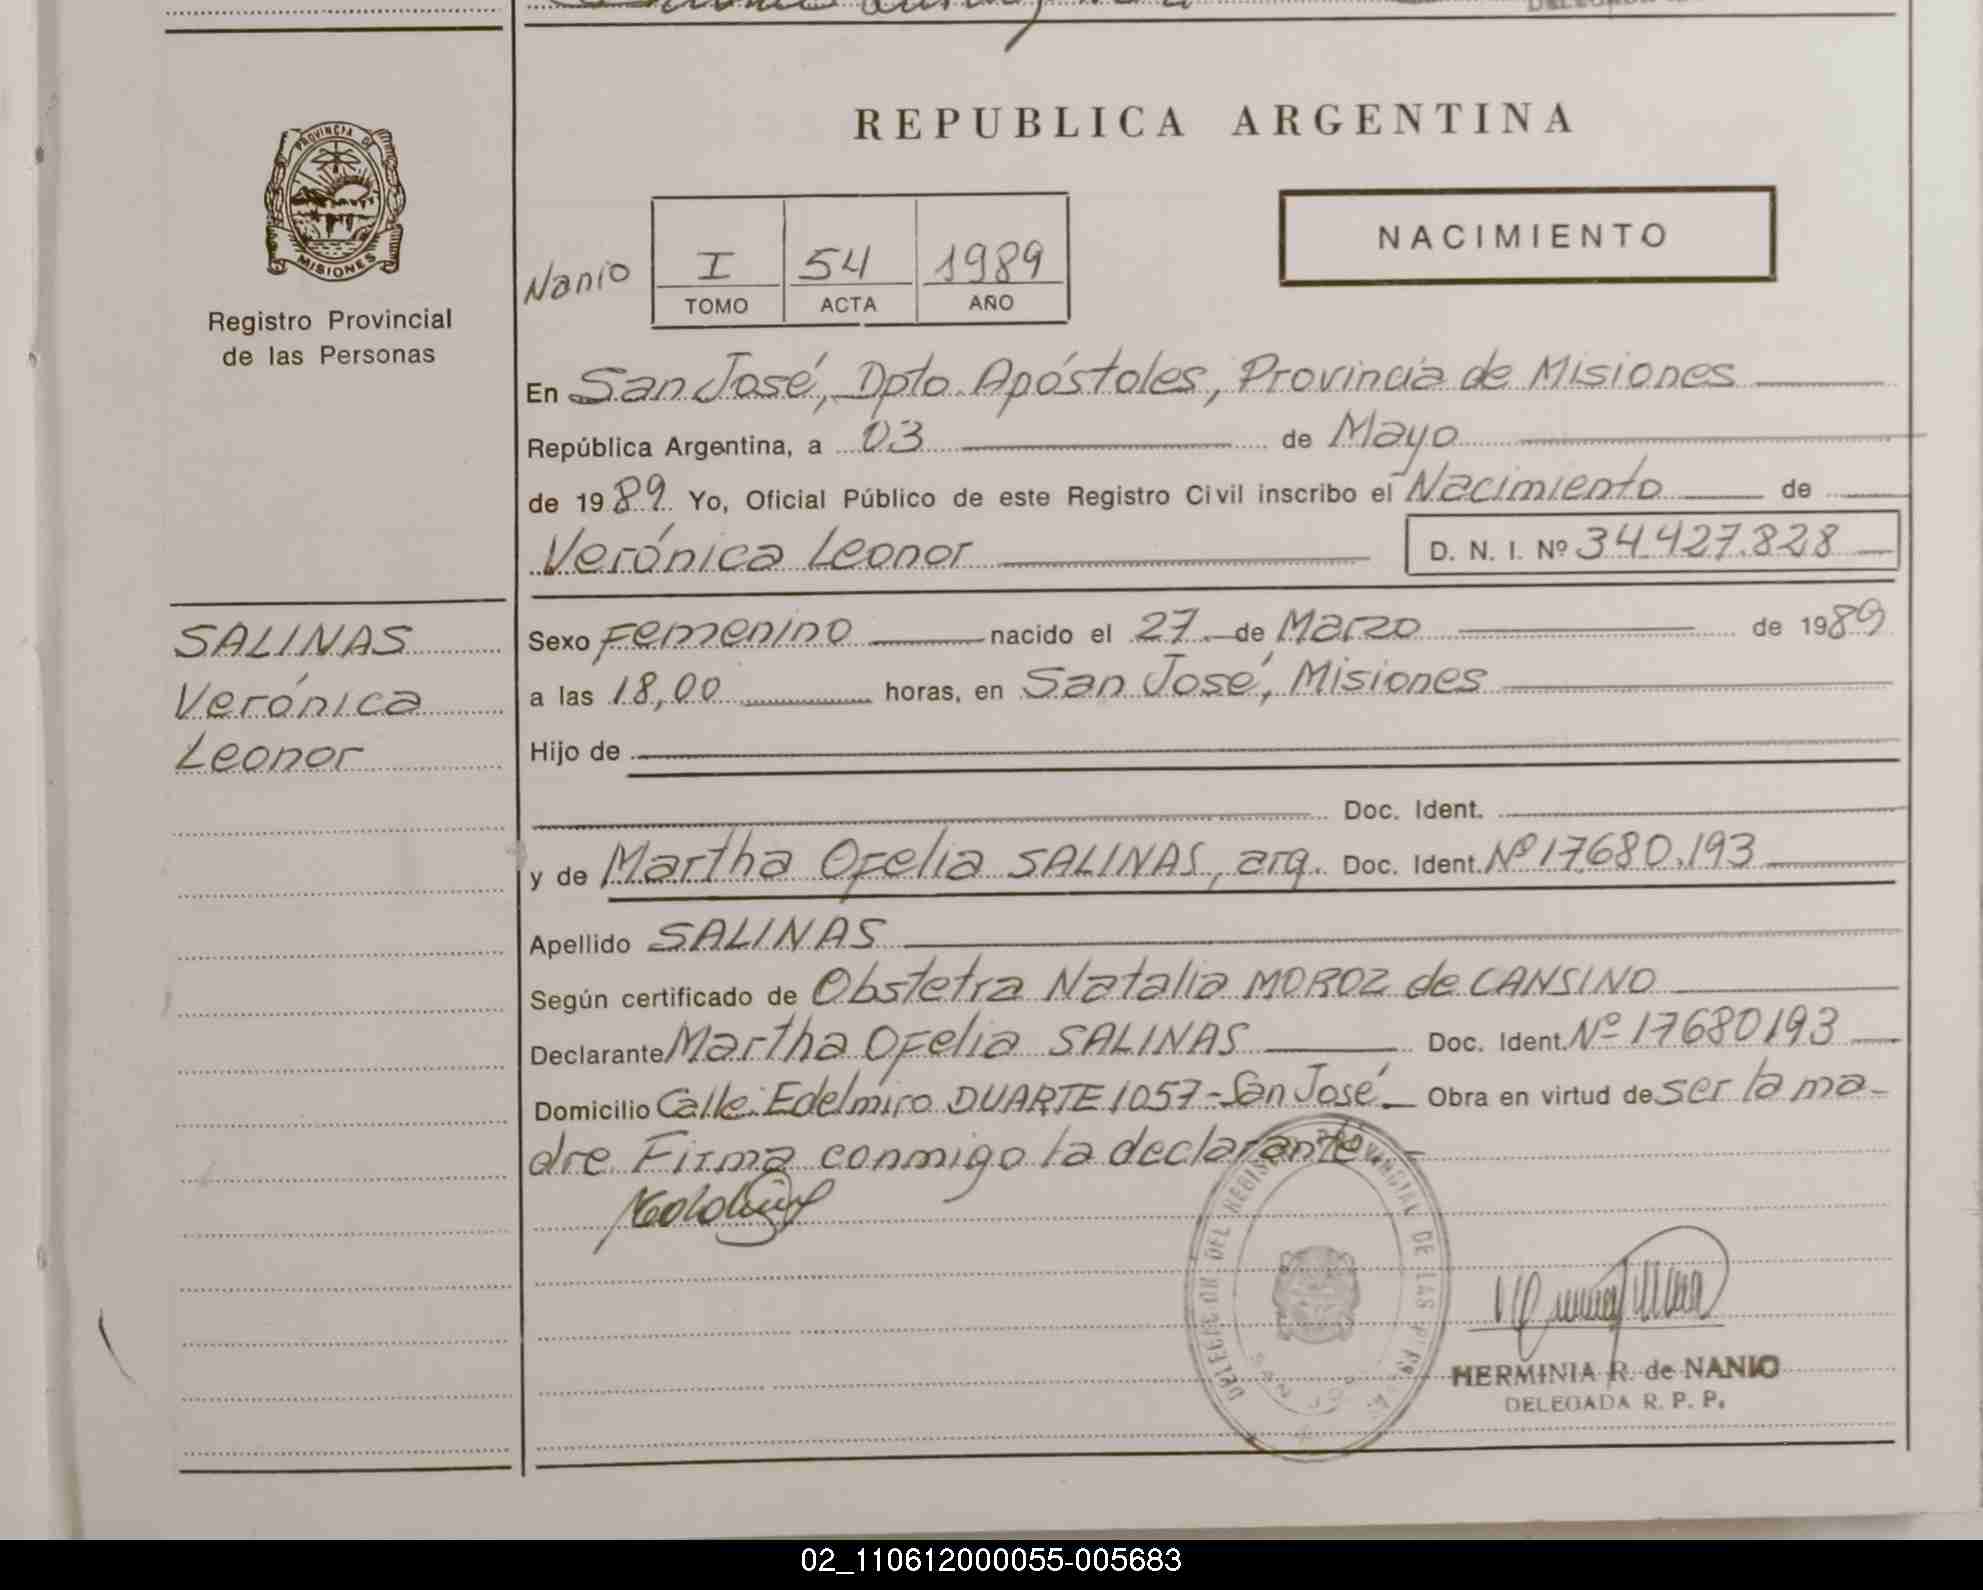 PROVINCIA DE
MISIONES
Registro Provincial
de las Personas
SALINAS
Verónica
Leonor
REPUBLICA ARGENTINA
NACIMIENTO
Nanio
I 54 1989
TOMO ACTA AÑO
En San José, Dpto. Apóstoles, Provincia de Misiones
República Argentina, a 03 de Mayo
de 1989. Yo, Oficial Público de este Registro Civil inscribo el Nacimiento de
Verónica Leonor D. N. I. Nº 34.427.828
Sexo Femenino nacido el 27 de Marzo de 1989
a las 18,00 horas, en San José, Misiones
Hijo de
Doc. Ident.
y de Martha Ofelia SALINAS, arg. Doc. Ident. Nº 17.680.193
Apellido SALINAS
Según certificado de Obstetra Natalia MOROZ de CANSINO
Declarante Martha Ofelia SALINAS Doc. Ident. Nº 17680193
Domicilio Calle: Edelmiro DUARTE 1057 - San José Obra en virtud de ser la ma-
dre. Firma conmigo la declarante.-
HERMINIA R. de NANIO
DELEGADA R. P. P.
02_110612000055-005683